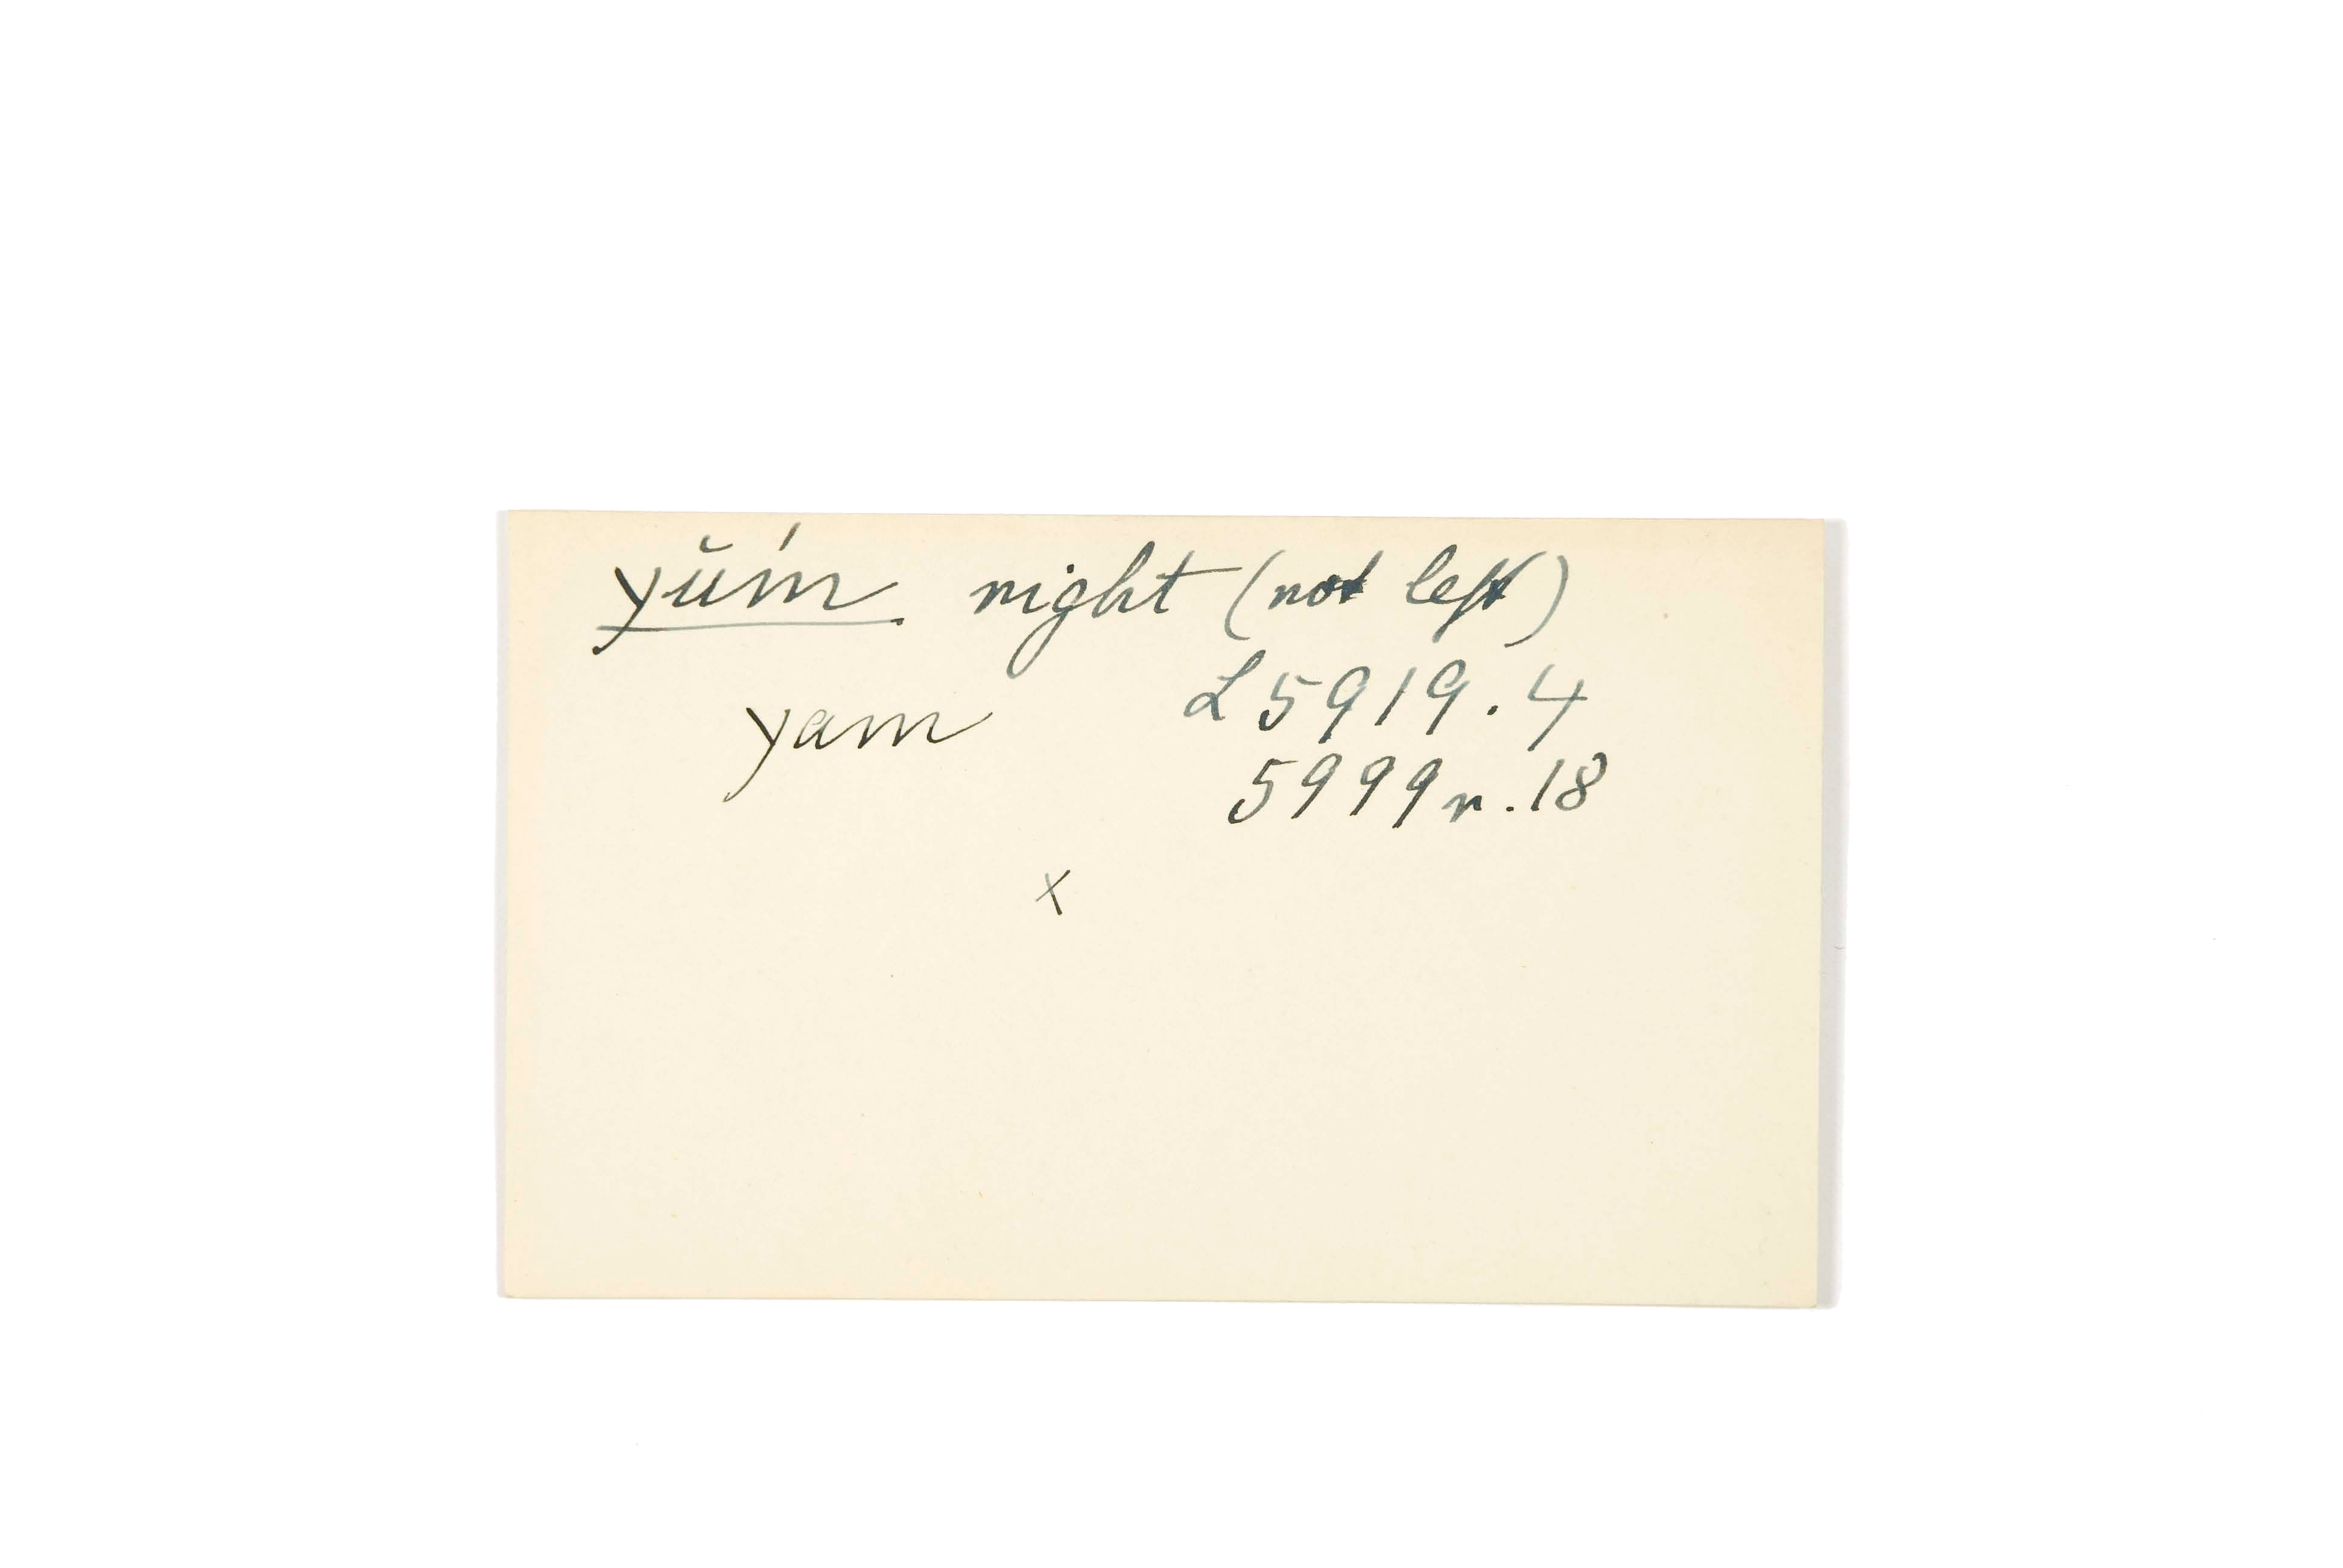 yŭḿ right (not left)
L5919.4
yam
5999r.18
x